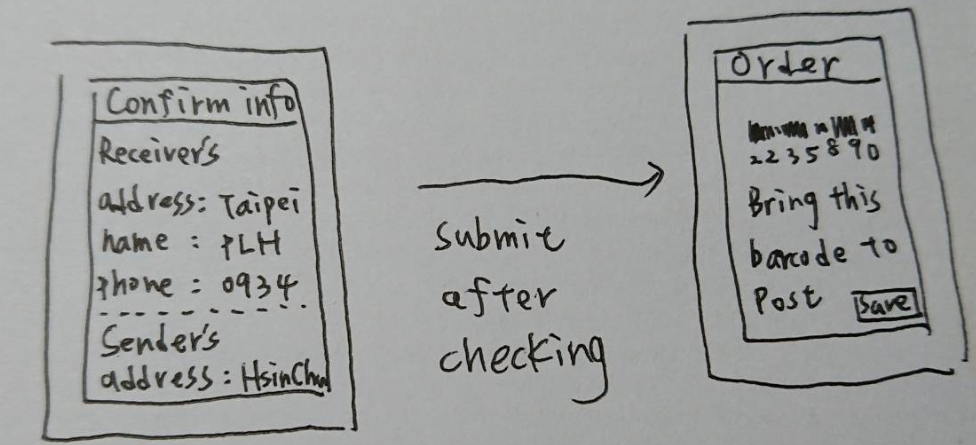 Confirm info
Receiver's
address: Taipei
name : PLH
phone : 0934
Sender's
address : HsinChu
submit
after
checking
Order
2235890
Bring this
barcode to
Post
Save